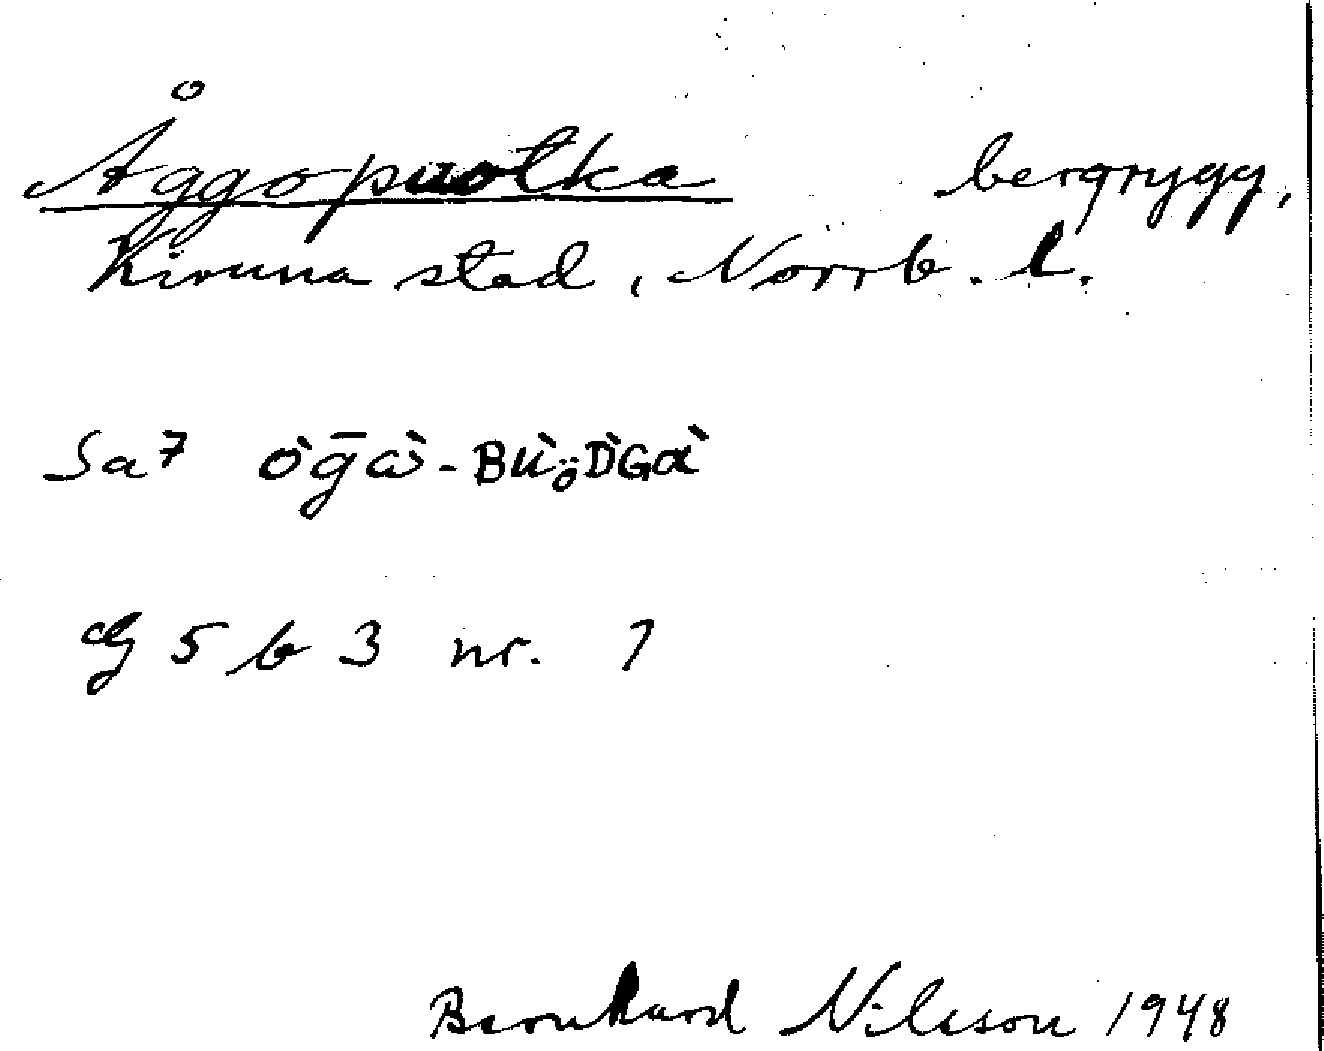 Åggopuolka bergrygg,
Kiruna stad, Norrb. l.
Sa7 ò̀ḡɷ̀-Bu̇̀öD̀Gὰ
Eg 5 b 3 nr. 7
Bernhard Nilsson 1948